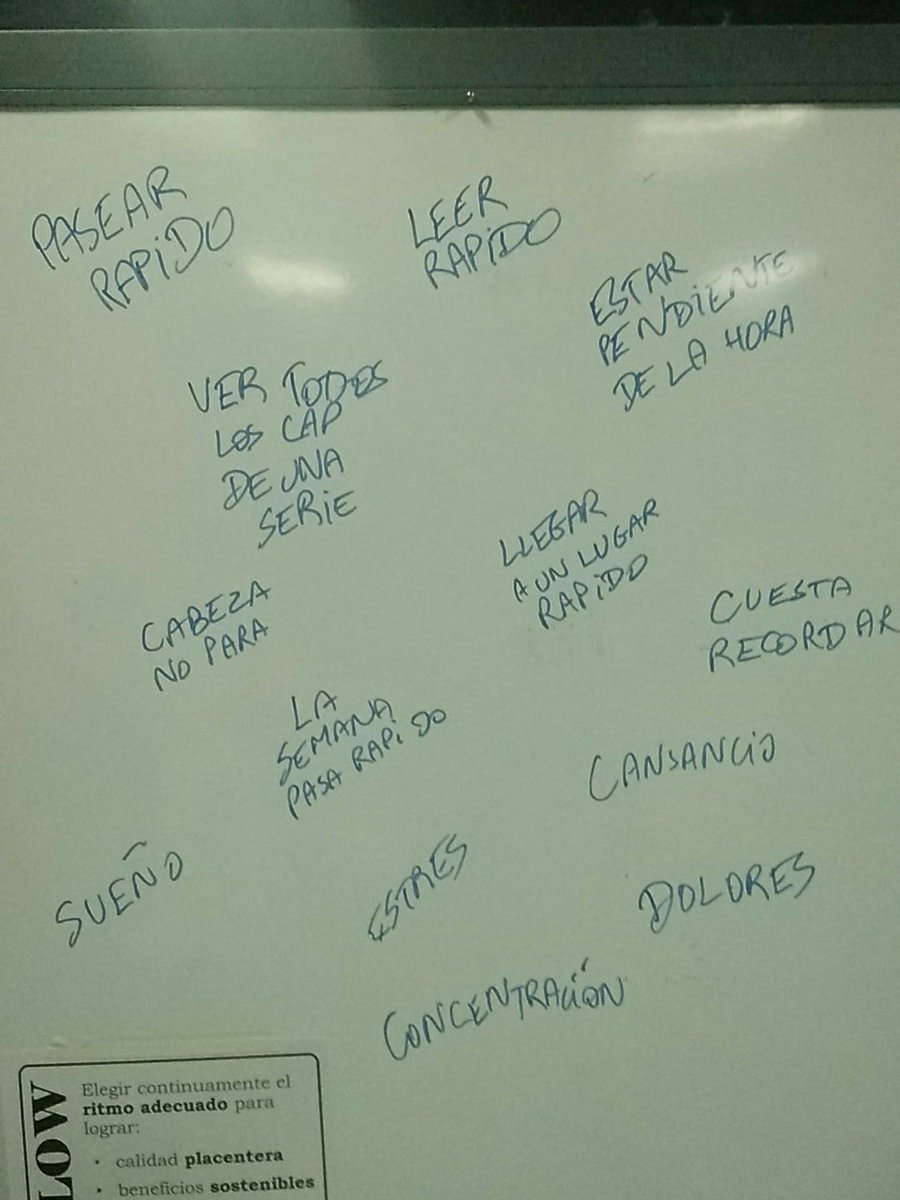 PASEAR
RAPiDO
LEER
RAPiDO
ESTAR
PENDiENTE
DE LA HORA
VER TODOS
LOS CAP
DE UNA
SERiE
LLEGAR
A UN LUGAR
RAPiDO
CABEZA
NO PARA
CUESTA
RECORDAR
LA
SEMANA
PASA RAPiDO
CANSANCiO
SUEÑO
ESTRES
DOLORES
CONCENTRACiÓN
LOW
Elegir continuamente el
ritmo adecuado para
lograr:
• calidad placentera
• beneficios sostenibles